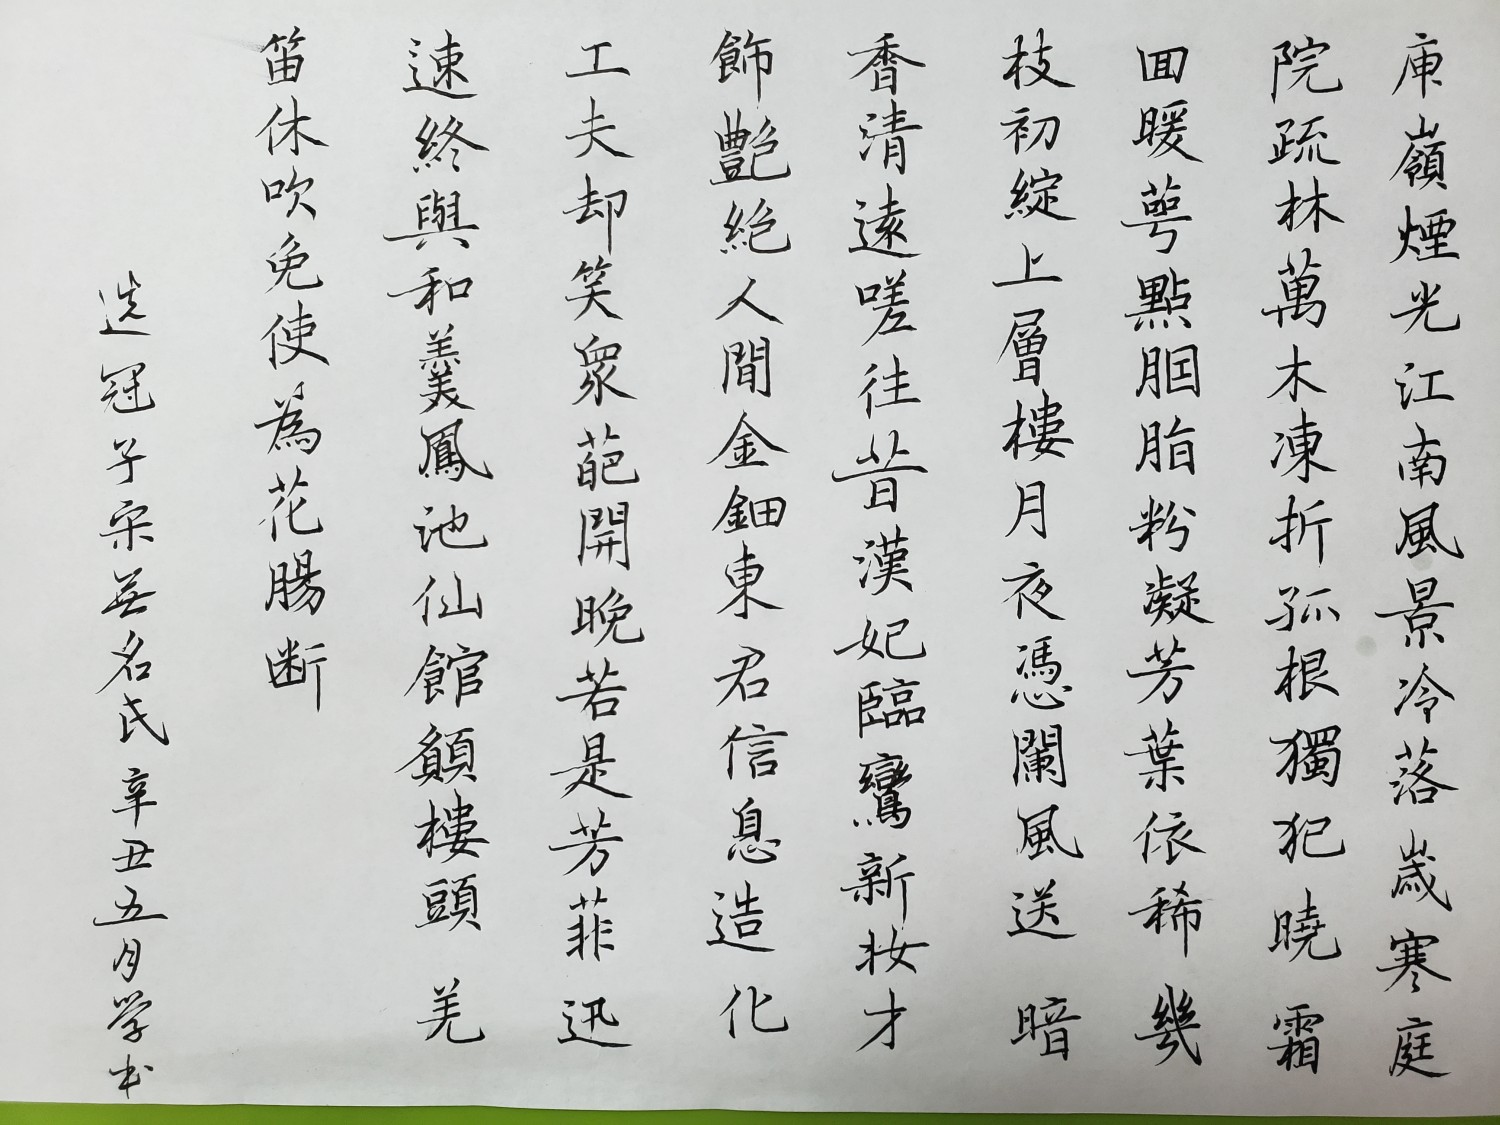 庾嶺煙光江南風景冷落歲寒庭
院疏林萬木凍折孤根獨犯曉霜
回暖萼點胭脂粉凝芳葉依稀幾
枝初綻上層樓月夜憑闌風送暗
香清遠嗟往昔漢妃臨鸞新妝才
飾艷絕人間金鈿東君信息造化
工夫却笑衆葩開晚若是芳菲迅
速終與和羹鳳池仙館顧樓頭羌
笛休吹免使為花腸断
选冠子宋無名氏辛丑五月学书